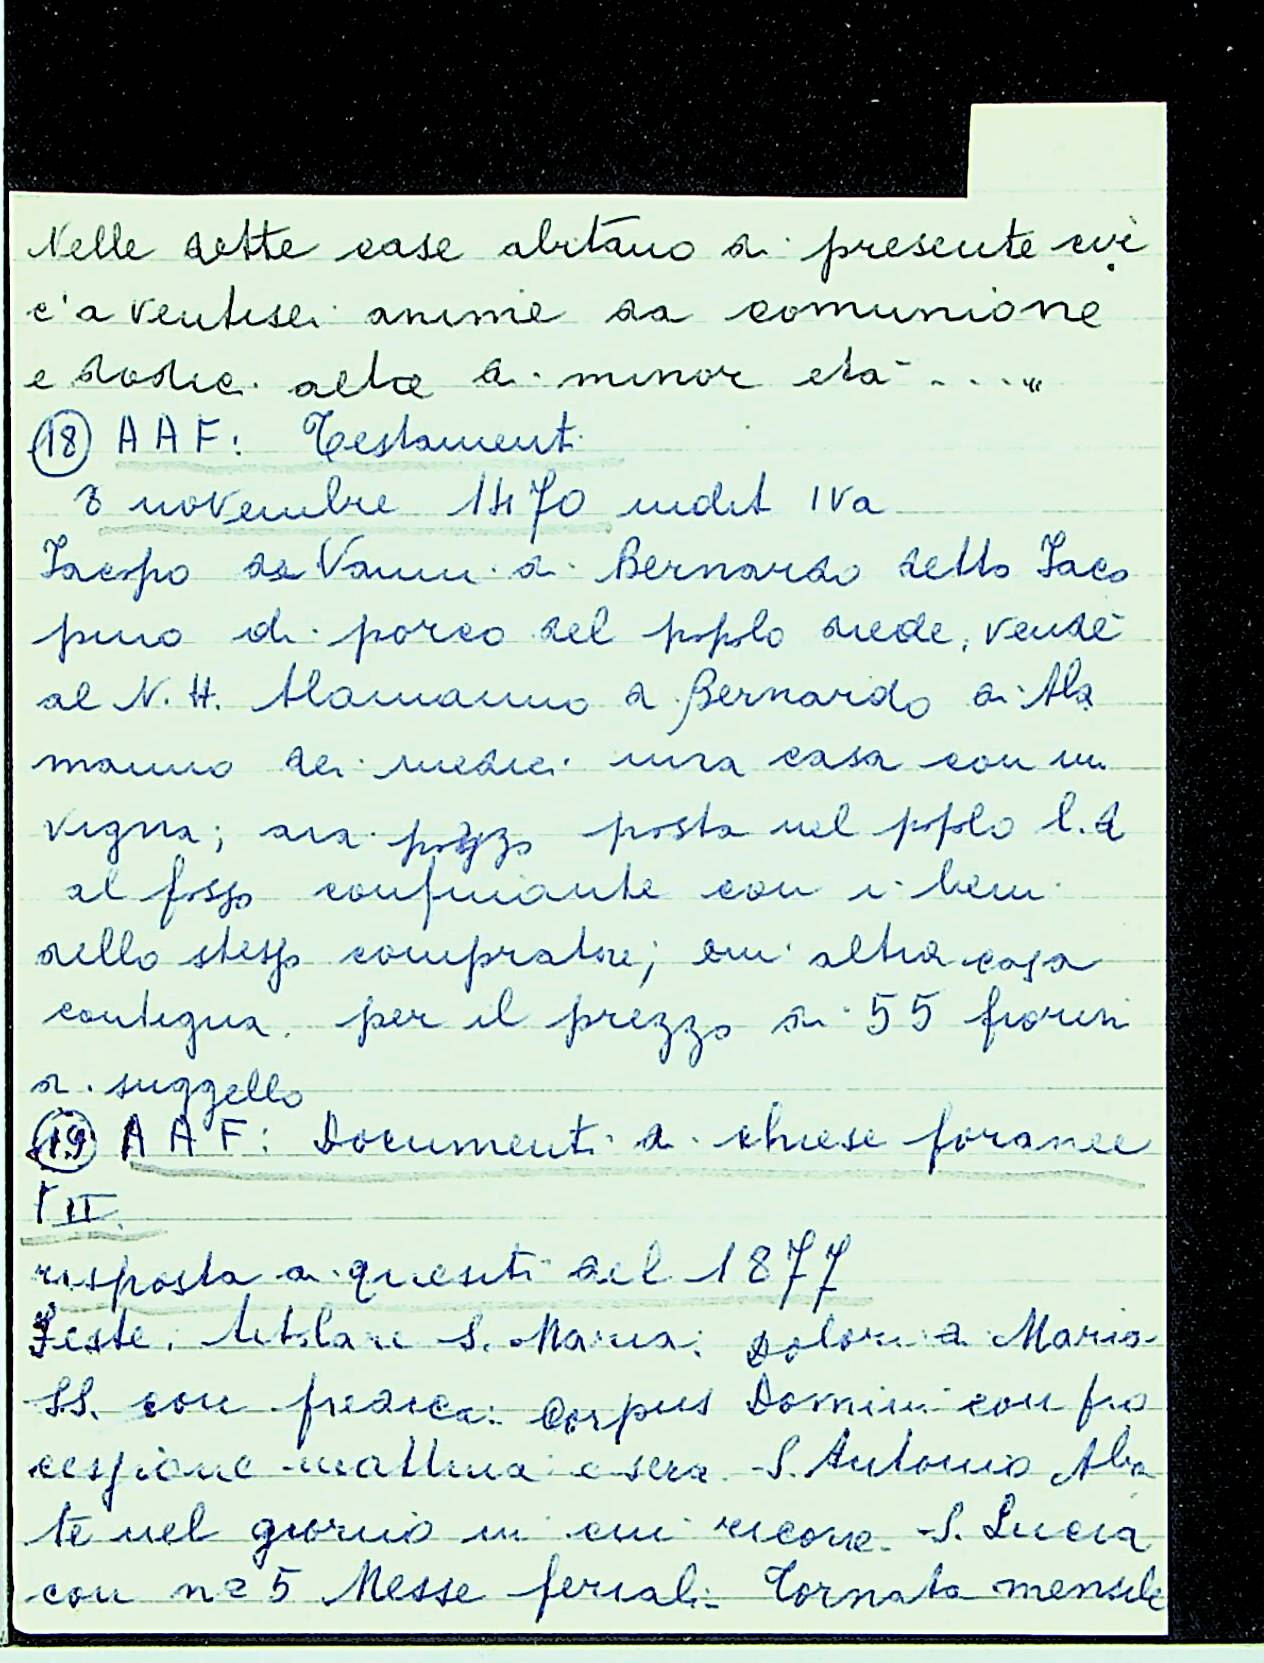 Nelle dette case abitano di presente cir
c'a ventisei anime da comunione
e dodici altre di minor età ...."
18 AAF: Testamenti
3 novembre 1470 indit IVa
Jacopo di Vanni di Bernardo detto Jaco
pino di porco del popolo sude, vendé
al N.H. Alamanno di Bernardo di Ala
manno dei medici una casa con
vigna; aia pozzo posta nel popolo l.d
al fosso confinante con i beni
dello stesso compratore; altra casa
contigua. per il prezzo di 55 fiorini
di suggello
19 AAF: Documenti di chiese foranee
II.
risposta ai quesiti del 1877
Feste. titolare S. Maria: Dolori di Maria
SS. con predica: Corpus Domini con pro
cessione mattina e sera. S. Antonio Aba
te nel giorno in cui ricorre. S. Lucia
con n=5 Messe feriali= Tornata mensile